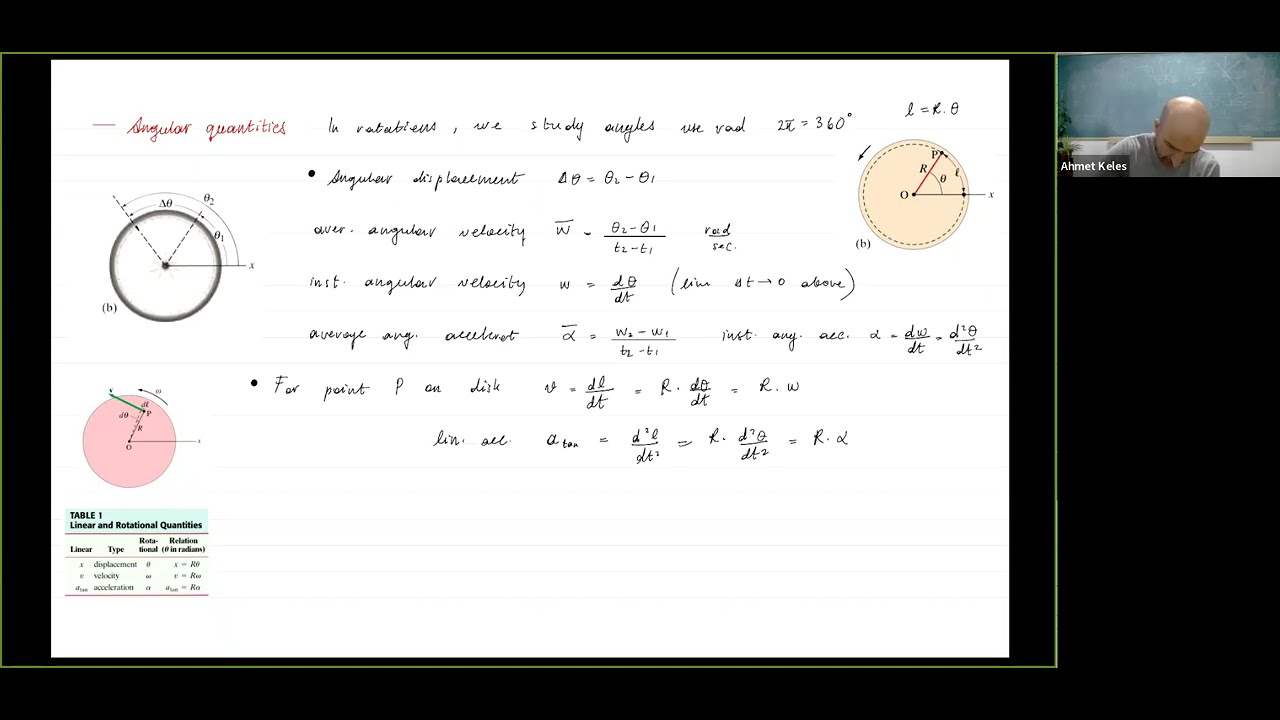 l = R.θ
— Angular quantities In rotations, we study angles use rad 2π = 360°
• Angular displacement Δθ = θ2 - θ1
aver. angular velocity w̄ = θ2-θ1 / t2-t1 rad/sec.
inst. angular velocity w = dθ/dt (lim Δt → 0 above)
average ang. accelerat ᾱ = w2-w1 / t2-t1 inst. ang. acc. α = dw/dt = d²θ/dt²
• For point P on disk v = dl/dt = R. dθ/dt = R. w
lin. acc. a tan = d²l/dt² = R. d²θ/dt² = R. α
P
R θ l
O x
(b)
Δθ θ2
θ1
x
(b)
v ω
dl
dθ P
R
O x
TABLE 1
Linear and Rotational Quantities
Linear Type Rota-tional Relation (θ in radians)
x displacement θ x = Rθ
v velocity ω v = Rω
a tan acceleration α a tan = Rα
Ahmet Keles